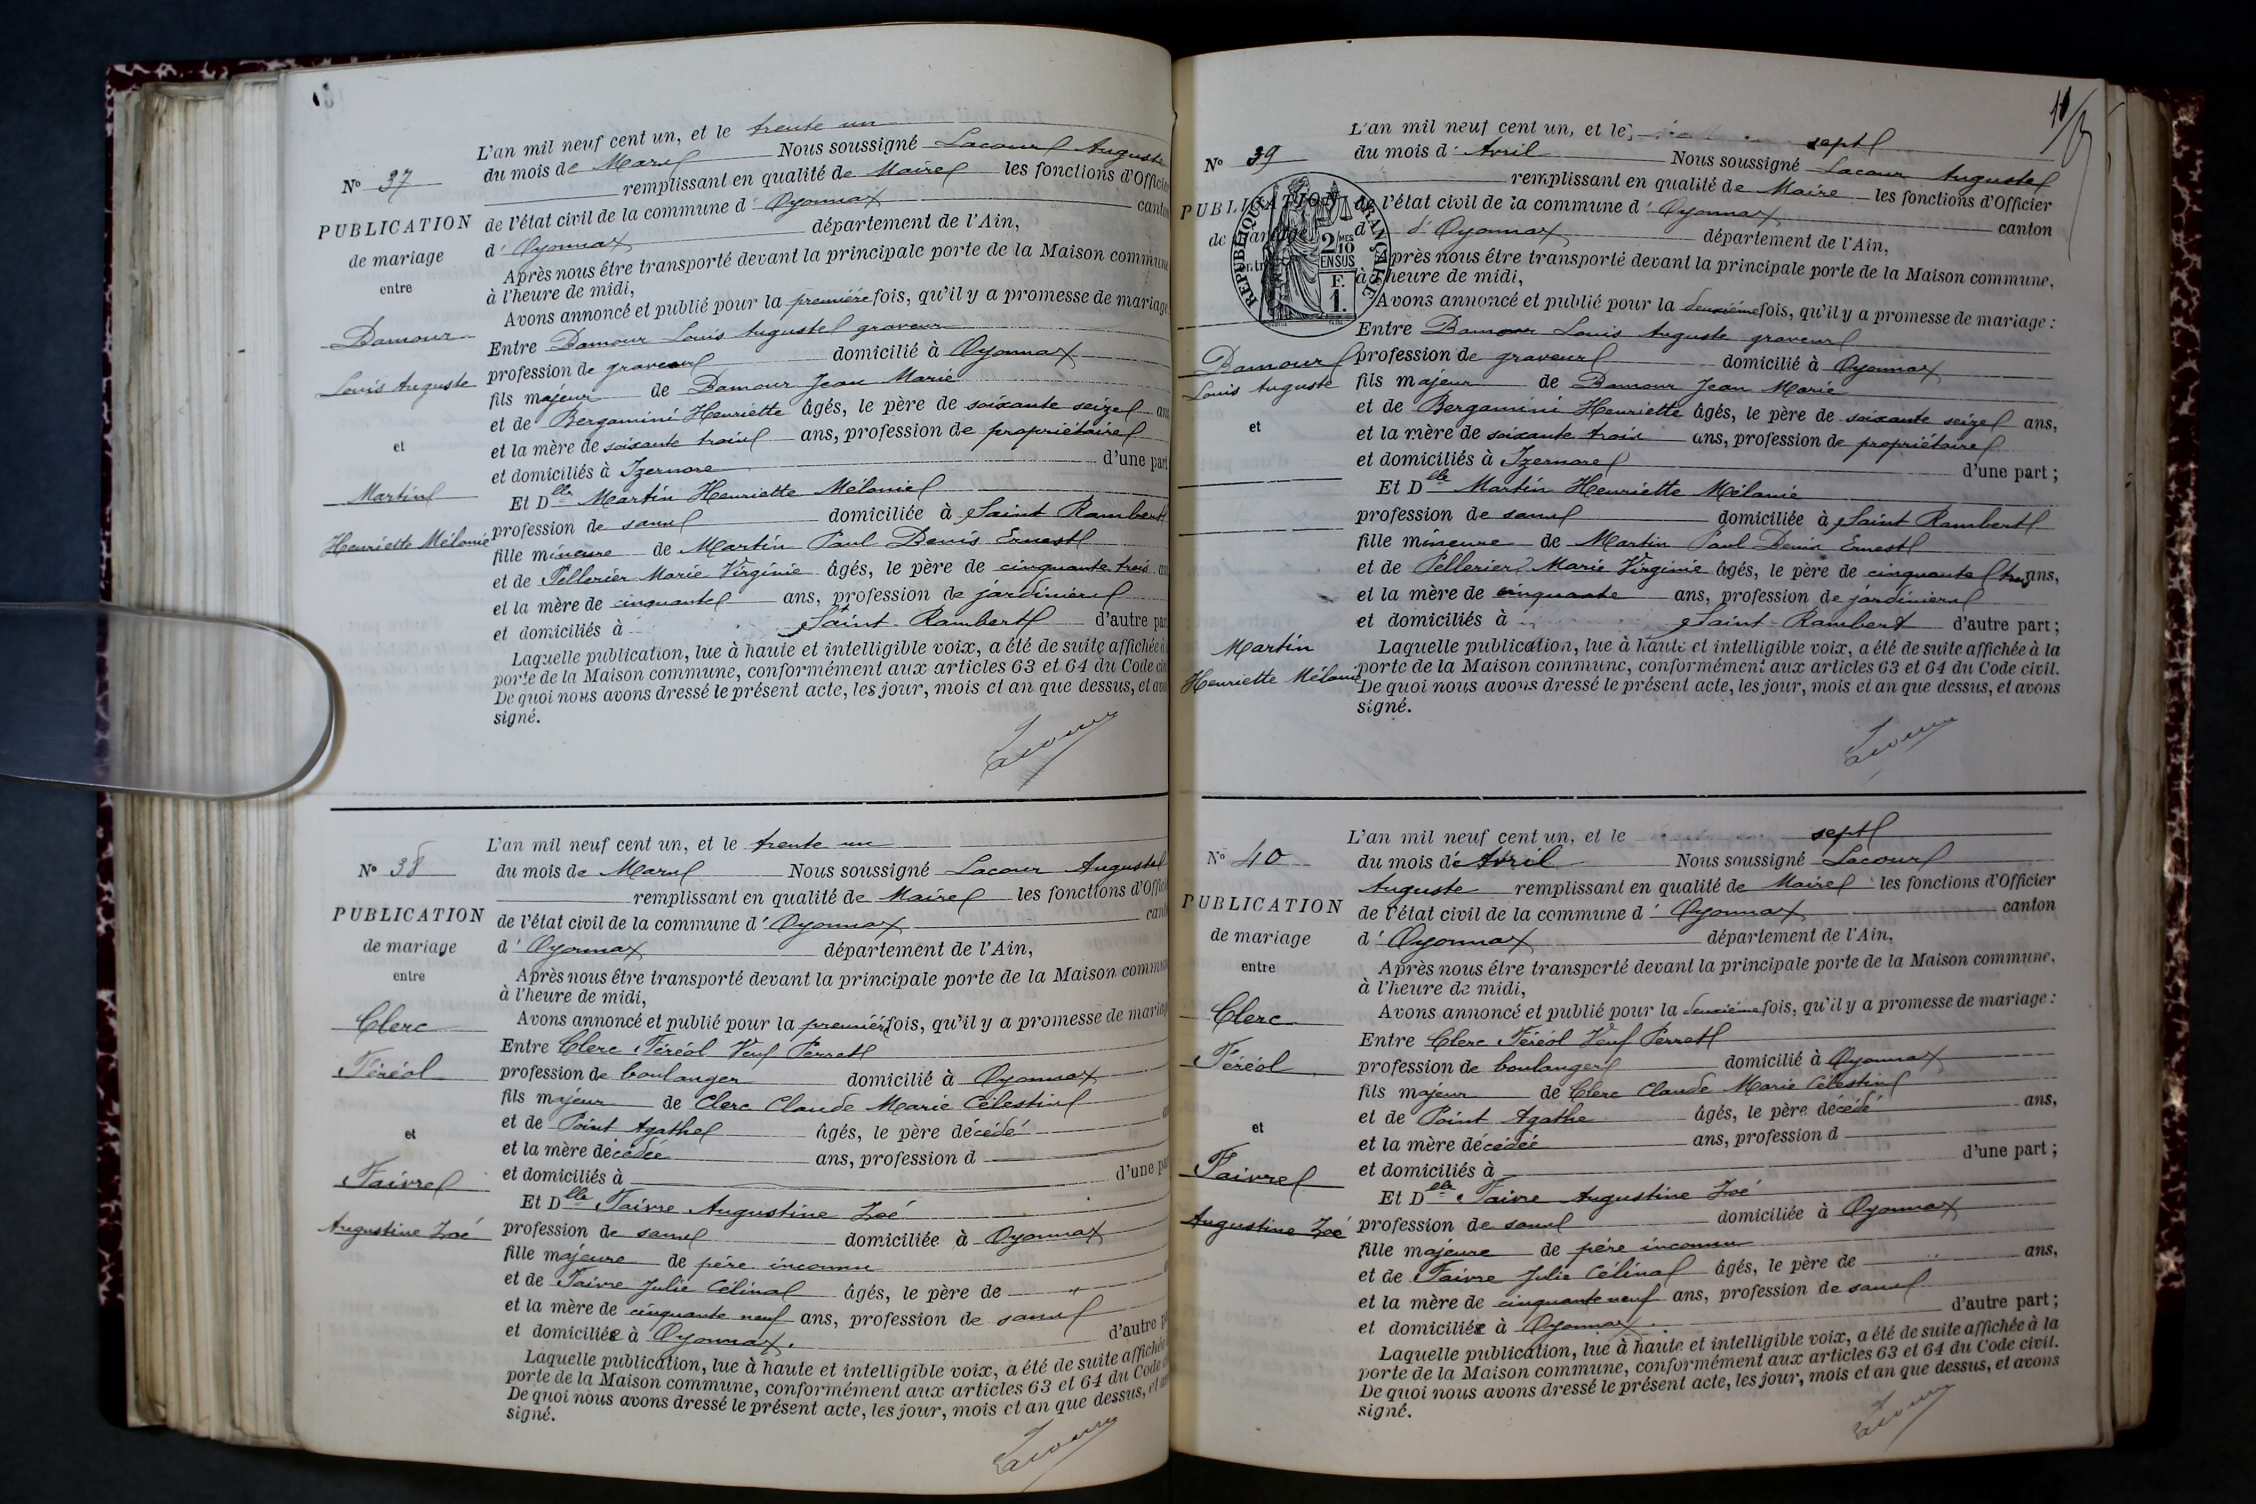 L'an mil neuf cent un, et le trente un
du mois de Mars Nous soussigné Lacour Auguste
N° 37
remplissant en qualité de Maire les fonctions d'Officier
PUBLICATION
de mariage
entre
Damour
Louis Auguste
et
Martin
Henriette Mélanie
de l'état civil de la commune d'Oyonnax canton
d'Oyonnax département de l'Ain,
Après nous être transporté devant la principale porte de la Maison commune
à l'heure de midi,
Avons annoncé et publié pour la première fois, qu'il y a promesse de mariage
Entre Damour Louis Auguste graveur
profession de graveur domicilié à Oyonnax
fils majeur de Damour Jean Marie
et de Bergamini Henriette âgés, le père de soixante seize ans
et la mère de soixante trois ans, profession de propriétaire
et domiciliés à Izernore d'une part
Et Dlle Martin Henriette Mélanie
profession de sans domiciliée à Saint Rambert
fille mineure de Martin Paul Denis Ernest
et de Pellerier Marie Virginie âgés, le père de cinquante trois
et la mère de cinquante ans, profession de jardinier
et domiciliés à Saint-Rambert d'autre part
Laquelle publication, lue à haute et intelligible voix, a été de suite affichée à
porte de la Maison commune, conformément aux articles 63 et 64 du Code civ
De quoi nous avons dressé le présent acte, les jour, mois et an que dessus, et avo
signé.
Lacour
L'an mil neuf cent un, et le trente un
N° 38
du mois de Mars Nous soussigné Lacour Auguste
remplissant en qualité de Maire les fonctions d'Offici
PUBLICATION
de mariage
entre
Clerc
Féréol
et
Faivre
Augustine Zoé
de l'état civil de la commune d'Oyonnax cant
d'Oyonnax département de l'Ain,
Après nous être transporté devant la principale porte de la Maison commu
à l'heure de midi,
Avons annoncé et publié pour la première fois, qu'il y a promesse de mariag
Entre Clerc Féréol Veuf Perret
profession de boulanger domicilié à Oyonnax
fils majeur de Clerc Claude Marie Célestin
et de Point Agathe âgés, le père décédé
et la mère décédée ans, profession d
et domiciliés à d'une par
Et Dlle Faivre Augustine Zoé
profession de sans domiciliée à Oyonnax
fille majeure de père inconnu
et de Faivre Julie Célina âgés, le père de "
et la mère de cinquante neuf ans, profession de sans
et domiciliée à Oyonnax. d'autre p
Laquelle publication, lue à haute et intelligible voix, a été de suite affichée
porte de la Maison commune, conformément aux articles 63 et 64 du Code
De quoi nous avons dressé le présent acte, les jour, mois et an que dessus, et
signé.
Lacour
L'an mil neuf cent un, et le sept
N° 39
du mois d'Avril Nous soussigné Lacour Auguste
remplissant en qualité de Maire les fonctions d'Officier
PUBLICATION
de mariage
entre
RÉPUBLIQUE FRANÇAISE
2/10 MES
EN SUS
F.
1.
Damour
Louis Auguste
et
Martin
Henriette Mélanie
de l'état civil de la commune d'Oyonnax canton
d' d'Oyonnax département de l'Ain,
Après nous être transporté devant la principale porte de la Maison commune,
à l'heure de midi,
Avons annoncé et publié pour la deuxième fois, qu'il y a promesse de mariage :
Entre Damour Louis Auguste graveur
profession de graveur domicilié à Oyonnax
fils majeur de Damour Jean Marie
et de Bergamini Henriette âgés, le père de soixante seize ans,
et la mère de soixante trois ans, profession de propriétaire
et domiciliés à Izernore d'une part ;
Et Dlle Martin Henriette Mélanie
profession de sans domiciliée à Saint Rambert
fille mineure de Martin Paul Denis Ernest
et de Pellerier Marie Virginie âgés, le père de cinquante trois ans,
et la mère de cinquante ans, profession de jardinier
et domiciliés à Saint-Rambert d'autre part ;
Laquelle publication, lue à haute et intelligible voix, a été de suite affichée à la
porte de la Maison commune, conformément aux articles 63 et 64 du Code civil.
De quoi nous avons dressé le présent acte, les jour, mois et an que dessus, et avons
signé.
Lacour
L'an mil neuf cent un, et le sept
N° 40
du mois de Avril Nous soussigné Lacour
Auguste remplissant en qualité de Maire les fonctions d'Officier
PUBLICATION
de mariage
entre
Clerc
Féréol
et
Faivre
Augustine Zoé
de l'état civil de la commune d'Oyonnax canton
d'Oyonnax département de l'Ain,
Après nous être transporté devant la principale porte de la Maison commune,
à l'heure de midi,
Avons annoncé et publié pour la deuxième fois, qu'il y a promesse de mariage :
Entre Clerc Féréol Veuf Perret
profession de boulanger domicilié à Oyonnax
fils majeur de Clerc Claude Marie Célestin
et de Point Agathe âgés, le père décédé ans,
et la mère décédée ans, profession d
et domiciliés à d'une part ;
Et Dlle Faivre Augustine Zoé
profession de sans domiciliée à Oyonnax
fille majeure de père inconnu
et de Faivre Julie Célina âgés, le père de " ans,
et la mère de cinquante neuf ans, profession de sans
et domiciliée à Oyonnax. d'autre part ;
Laquelle publication, lue à haute et intelligible voix, a été de suite affichée à la
porte de la Maison commune, conformément aux articles 63 et 64 du Code civil.
De quoi nous avons dressé le présent acte, les jour, mois et an que dessus, et avons
signé.
Lacour